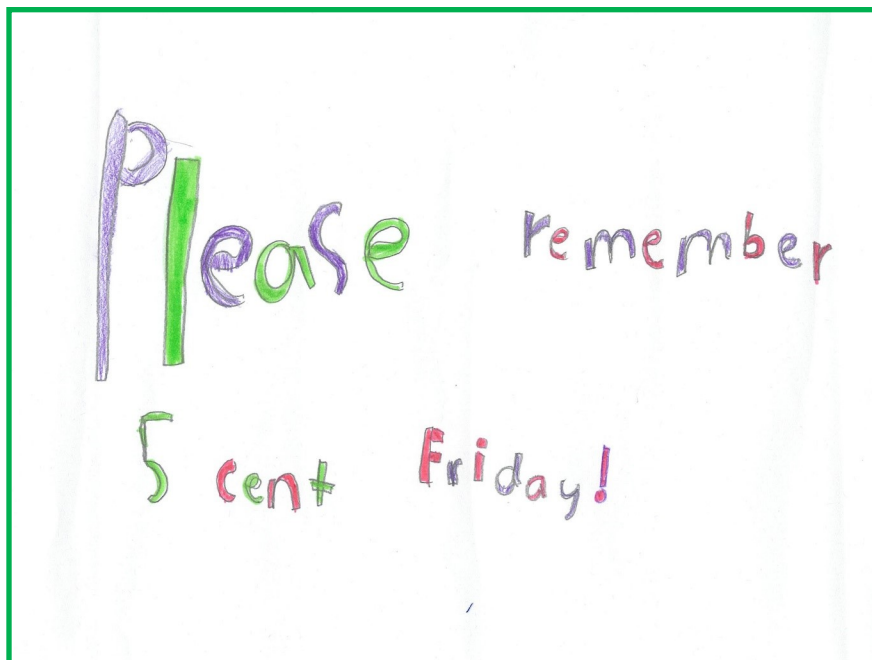 Please remember
5 cent Friday!